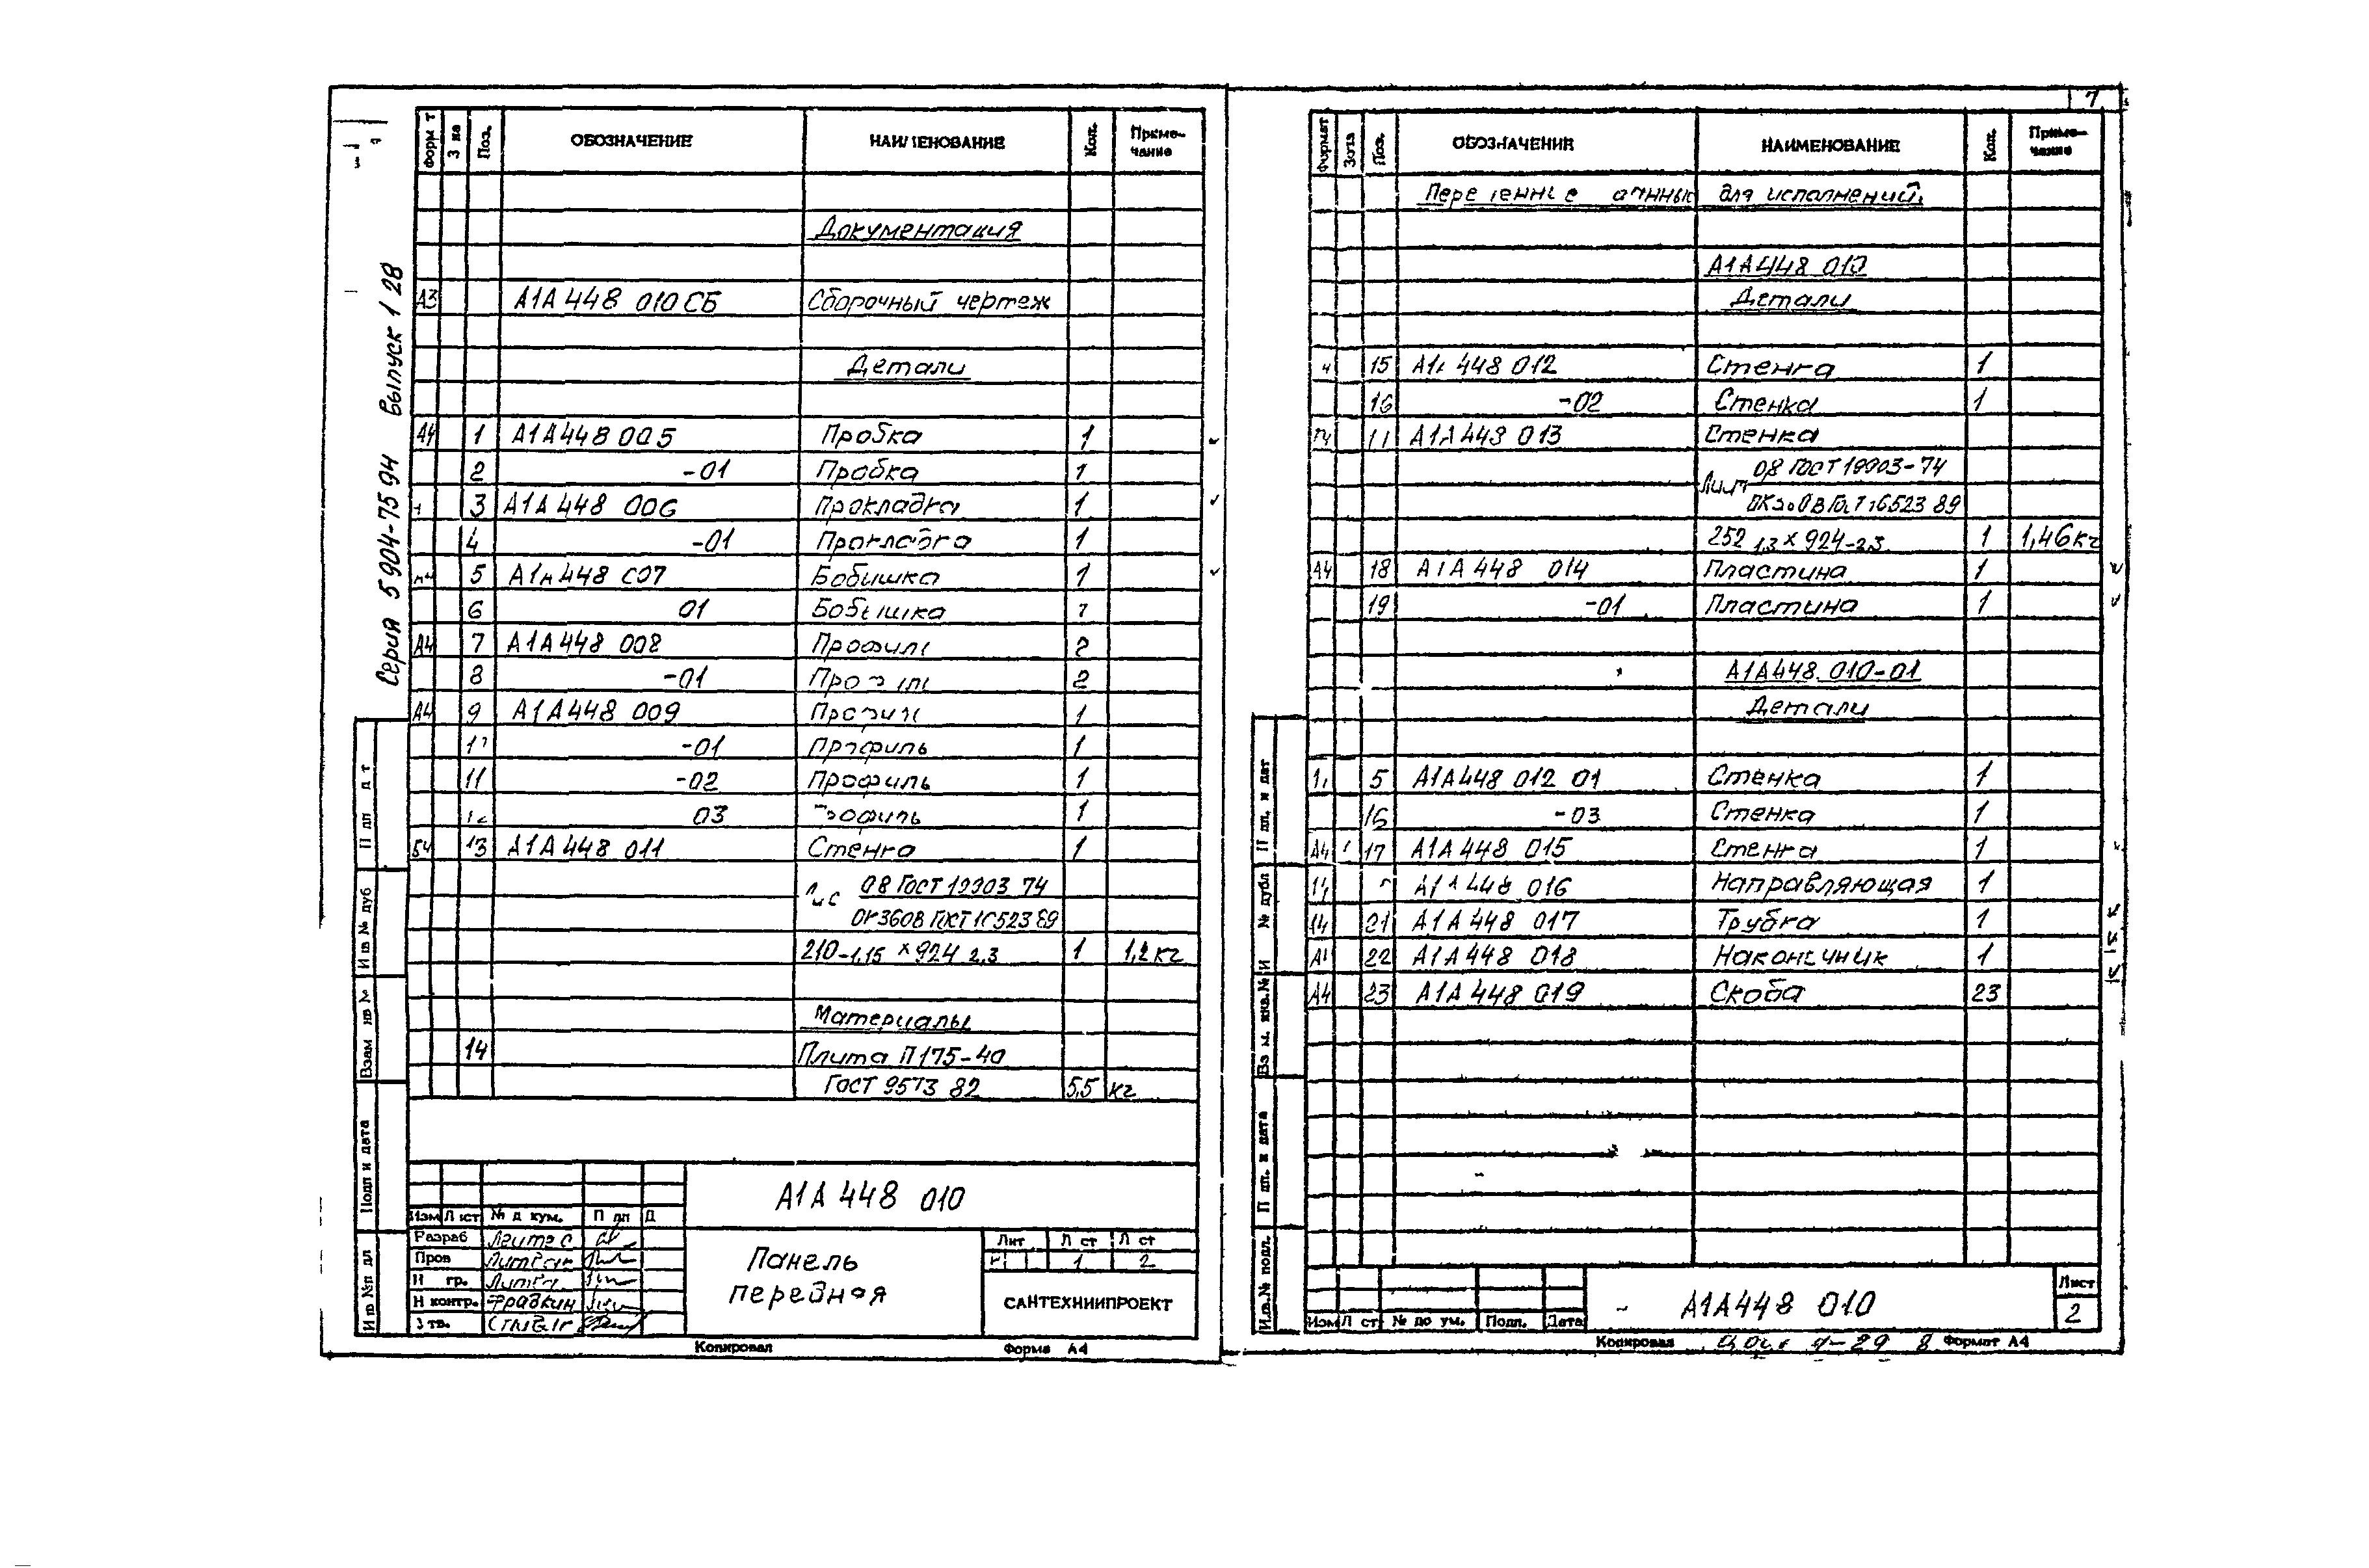 Серия 5 904-75 94 Выпуск 1 28
Поз. ОБОЗНАЧЕНИЕ НАИМЕНОВАНИЕ Кол. Приме-
чание
Документация
А3 А1А 448 010 СБ Сборочный чертеж
Детали
А4 1 А1А 448 005 Пробка 1
2 -01 Пробка 1
3 А1А 448 006 Прокладка 1
4 -01 Прокладка 1
5 А1А 448 007 Бобышка 1
6 01 Бобышка 1
А4 7 А1А 448 008 Профиль 2
8 -01 Профиль 2
А4 9 А1А 448 009 Профиль 1
-01 Профиль 1
11 -02 Профиль 1
12 03 Профиль 1
Б4 13 А1А 448 011 Стенка 1
08 ГОСТ 19903 74
ОК360В ГОСТ 16523 89
210-1,15 х 924 2,3 1 1,2 кг
Материалы
14 Плита П 175-40
ГОСТ 9573 82 5,5 кг
А1А 448 010
Изм № д кум.
Разраб
Пров
Н контр. Фрадкин
Панель
передная
Лит Л ст Л ст
1 2
САНТЕХНИИПРОЕКТ
Подп и дата
Копировал Форма А4
7
Формат Зона Поз. ОБОЗНАЧЕНИЕ НАИМЕНОВАНИЕ Кол. Приме-
чание
для исполнений.
А1А 448 010
Детали
15 А1А 448 012 Стенка 1
16 -02 Стенка 1
А1А 448 013 Стенка
Лист 08 ГОСТ 19903-74
ОК360В ГОСТ 16523 89
252 1,3 х 924-2,3 1 1,46 кг
А4 18 А1А 448 014 Пластина 1
19 -01 Пластина 1
А1А 448. 010-01
Детали
А1А 448 012 01 Стенка 1
16 -03 Стенка 1
А4 17 А1А 448 015 Стенка 1
А1А 448 016 Направляющая 1
21 А1А 448 017 Трубка 1
22 А1А 448 018 Наконечник 1
А4 23 А1А 448 019 Скоба 23
Изм Л ст № до ум. Подп. Дата
А1А 448 010
Лист
2
Копировал Формат А4